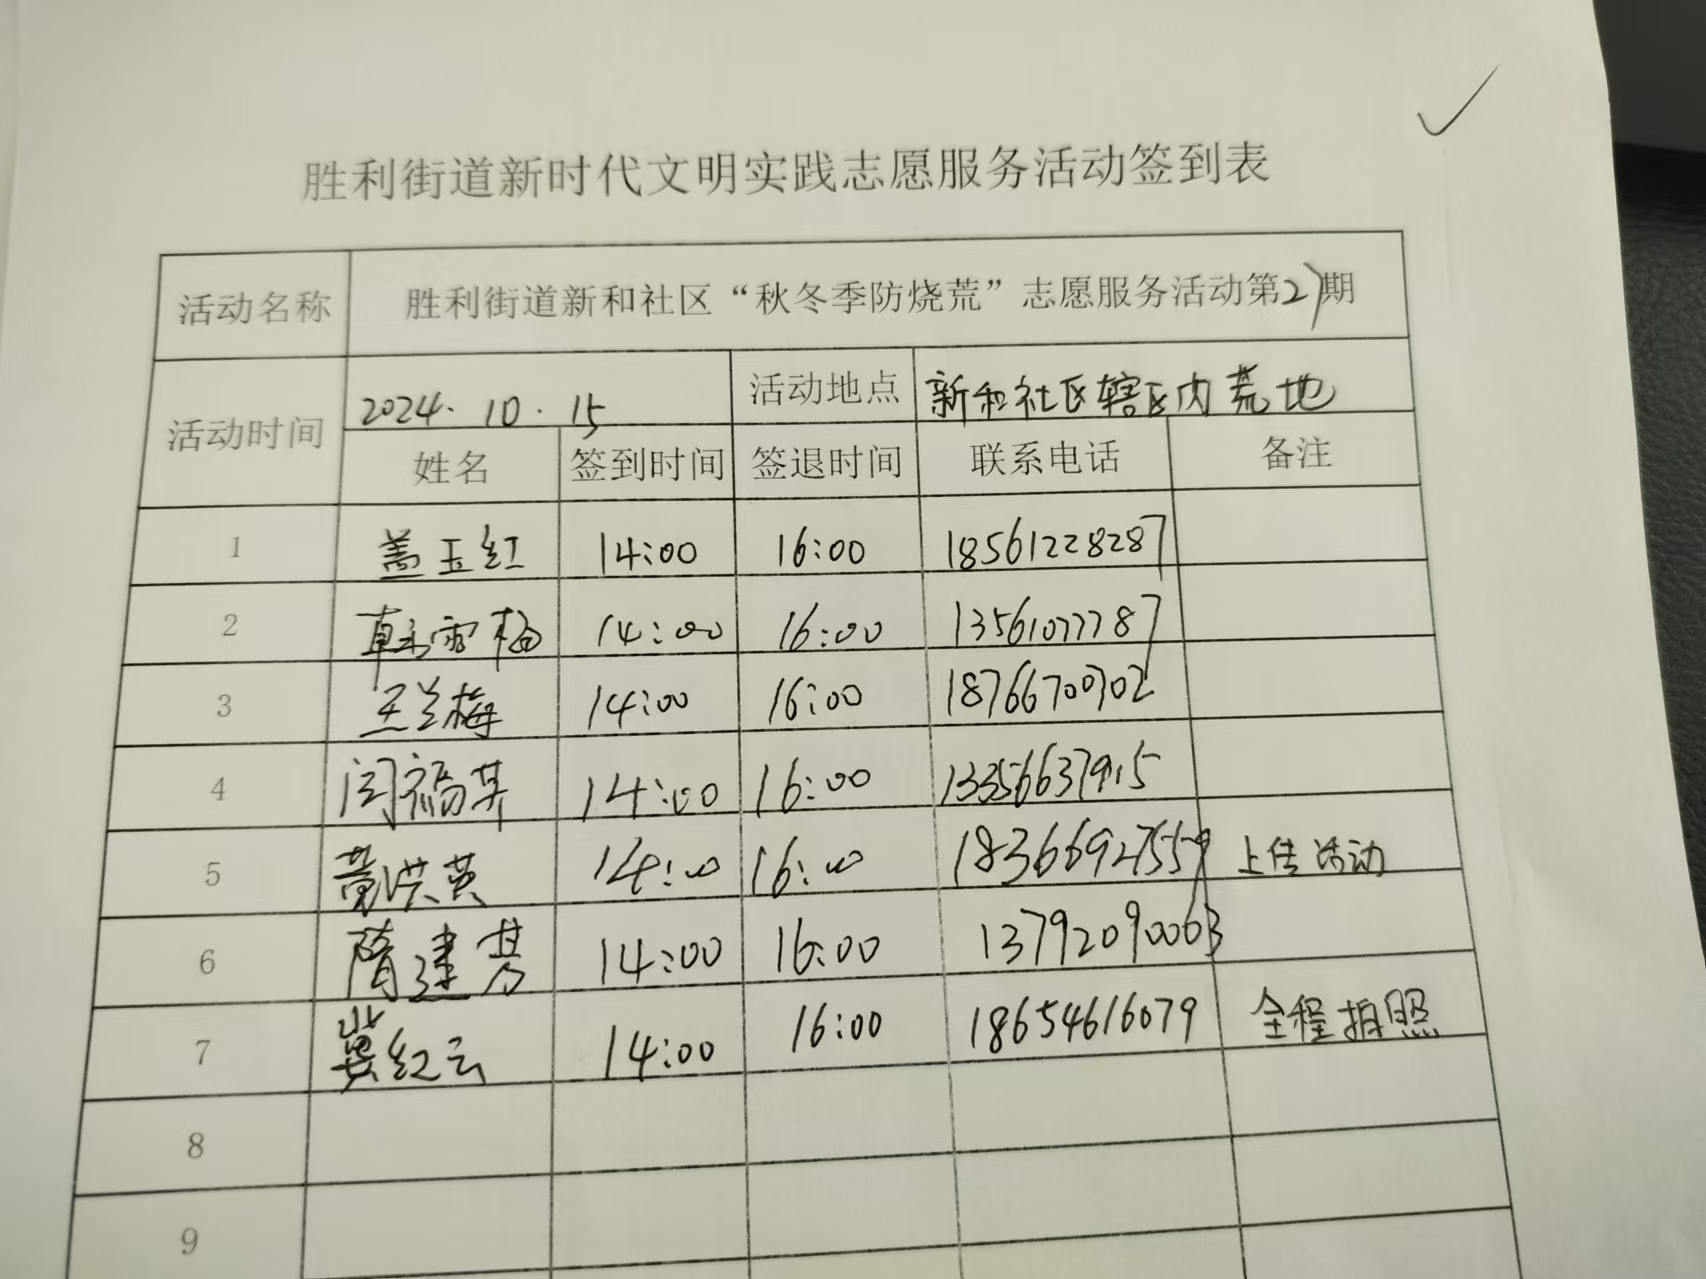 胜利街道新时代文明实践志愿服务活动签到表
活动名称 胜利街道新和社区“秋冬季防烧荒”志愿服务活动第27期
活动时间 2024.10.15 活动地点 新和社区辖区内荒地
姓名 签到时间 签退时间 联系电话 备注
1 盖玉红 14:00 16:00 18561228287
2 雪梅 14:00 16:00 13561077787
3 王兰梅 14:00 16:00 18766700702
4 闫福英 14:00 16:00 13356637915
5 黄洪英 14:00 16:00 18366927559 上传活动
6 隋建芳 14:00 16:00 13792090063
7 冀红云 14:00 16:00 18654616079 全程拍照
8
9